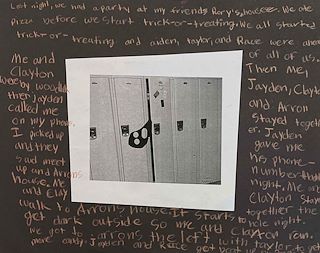 Last night, we had a party at my friends Rory's house. We ate
Pizza before we start trick-or-treating. We all started
trick-or-treating and aiden, taylor, and Race were
of all of us.
Me and
Clayton
Then Me,
Jayden, Clayton
and Arron
then Jayden
called me
Stayed together.
on my phone.
Jayden
I picked up
gave me
and they
his phone-
said meet
number
up and Arrons
night. Me and
house. Me
Clayton Stayed
and Clay
together the
walk to Arrons house. It starts to
hole night.
get dark outside so me and Clayton ran.
we got to arrons the left with taylor to get
more candy. Jayden and Race get